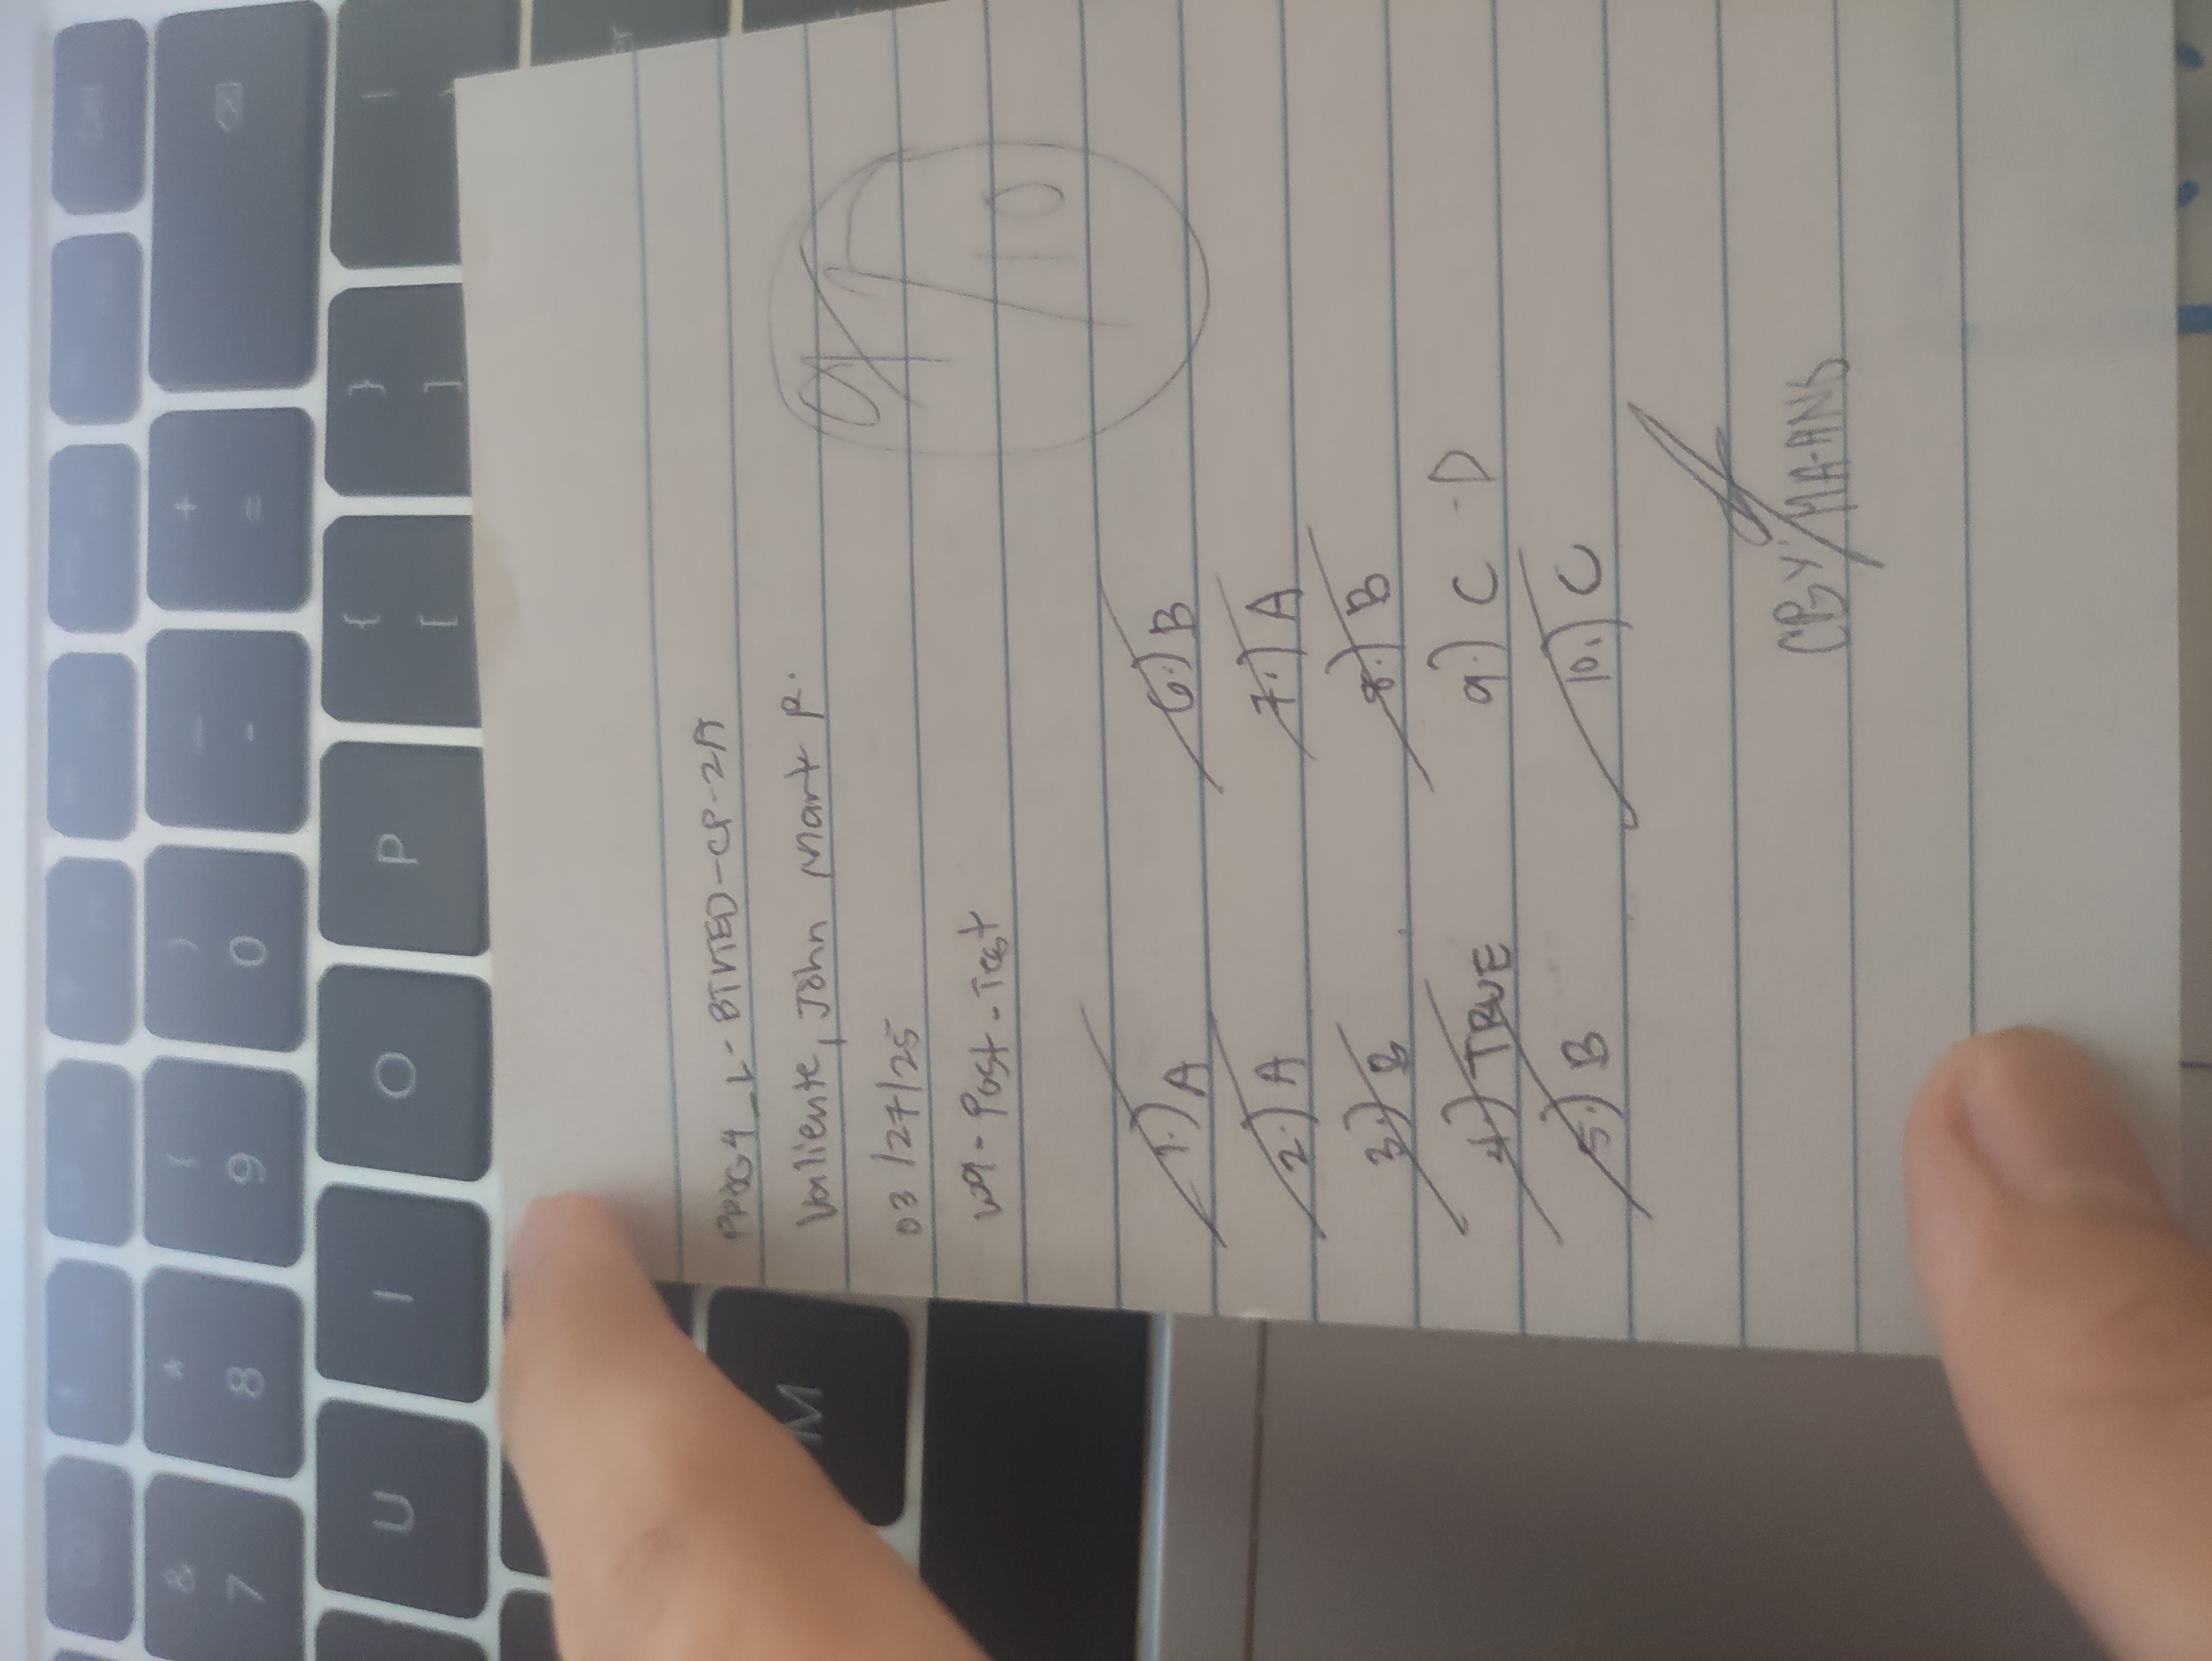 &
7
*
8
(
9
)
0
_
-
+
=
U
I
O
P
{
[
}
]
|
\
M
PROG4_L-BTVTED-CP-2A
Valiente, John Mark P.
03/27/25
W9-Post-Test
9/10
1.) A
2.) A
3.) B
4.) TRUE
5.) B
6.) B
7.) A
8.) B
9.) C -D
10.) C
CBY: